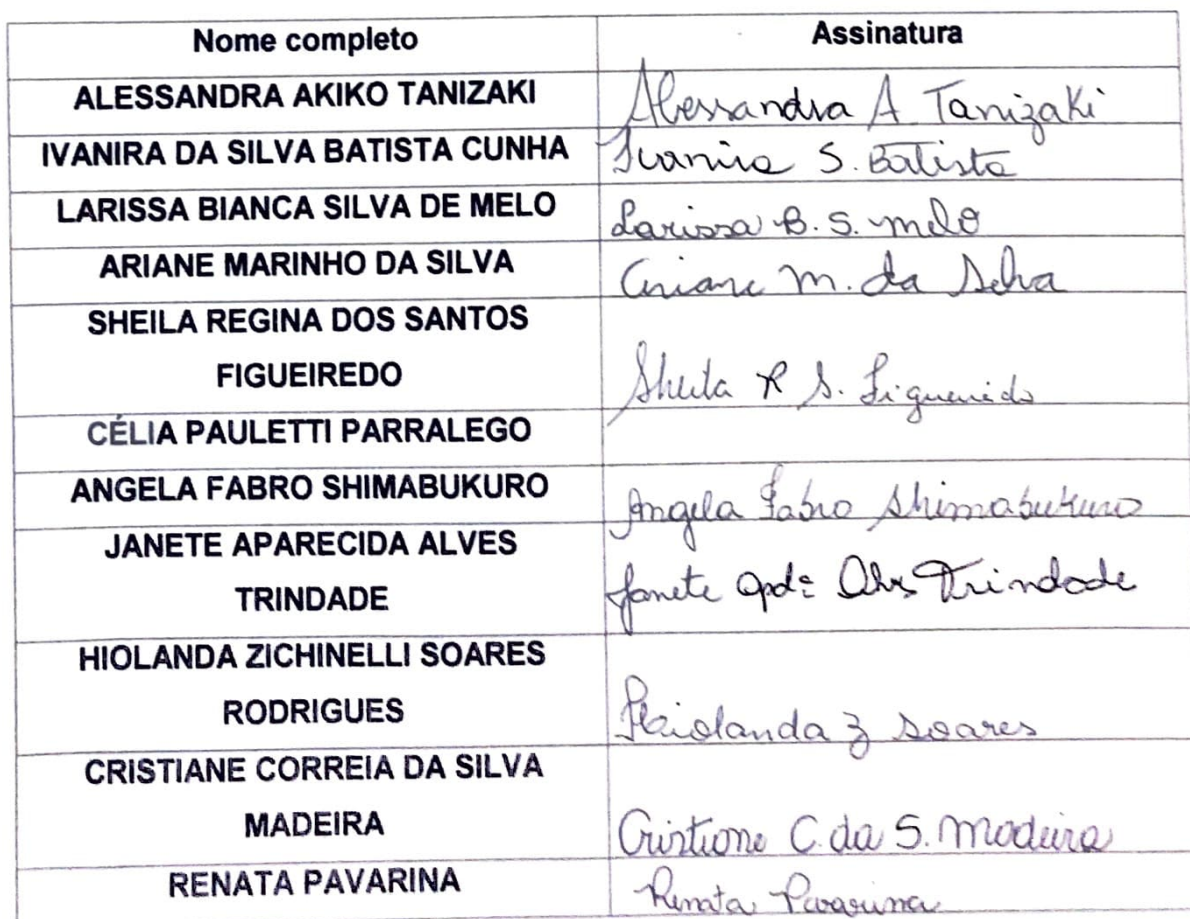 Nome completo Assinatura
ALESSANDRA AKIKO TANIZAKI Alessandra A Tanizaki
IVANIRA DA SILVA BATISTA CUNHA Ivanira S. Batista
LARISSA BIANCA SILVA DE MELO Larissa B. S. melo
ARIANE MARINHO DA SILVA Ariane m. da Silva
SHEILA REGINA DOS SANTOS
FIGUEIREDO Sheila R S. Figueiredo
CÉLIA PAULETTI PARRALEGO
ANGELA FABRO SHIMABUKURO Angela Fabro Shimabukuro
JANETE APARECIDA ALVES
TRINDADE Janete Apdª Alves Trindade
HIOLANDA ZICHINELLI SOARES
RODRIGUES Hiolanda Z Soares
CRISTIANE CORREIA DA SILVA
MADEIRA Cristiane C. da S. Madeira
RENATA PAVARINA Renata Pavarina